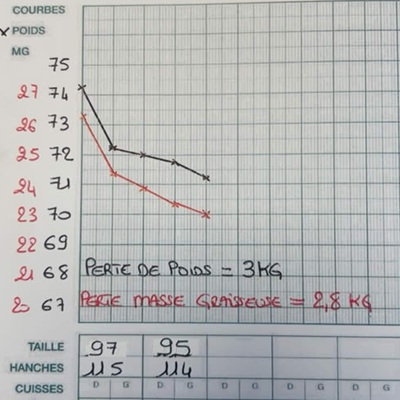 COURBES
x POIDS
MG
75
27 74
26 73
25 72
24 71
23 70
22 69
21 68 PERTE DE POIDS = 3KG
20 67 PERTE MASSE GRAISSEUSE = 2,8 KG
TAILLE 97 95
HANCHES 115 114
CUISSES D G D G D G D G D G